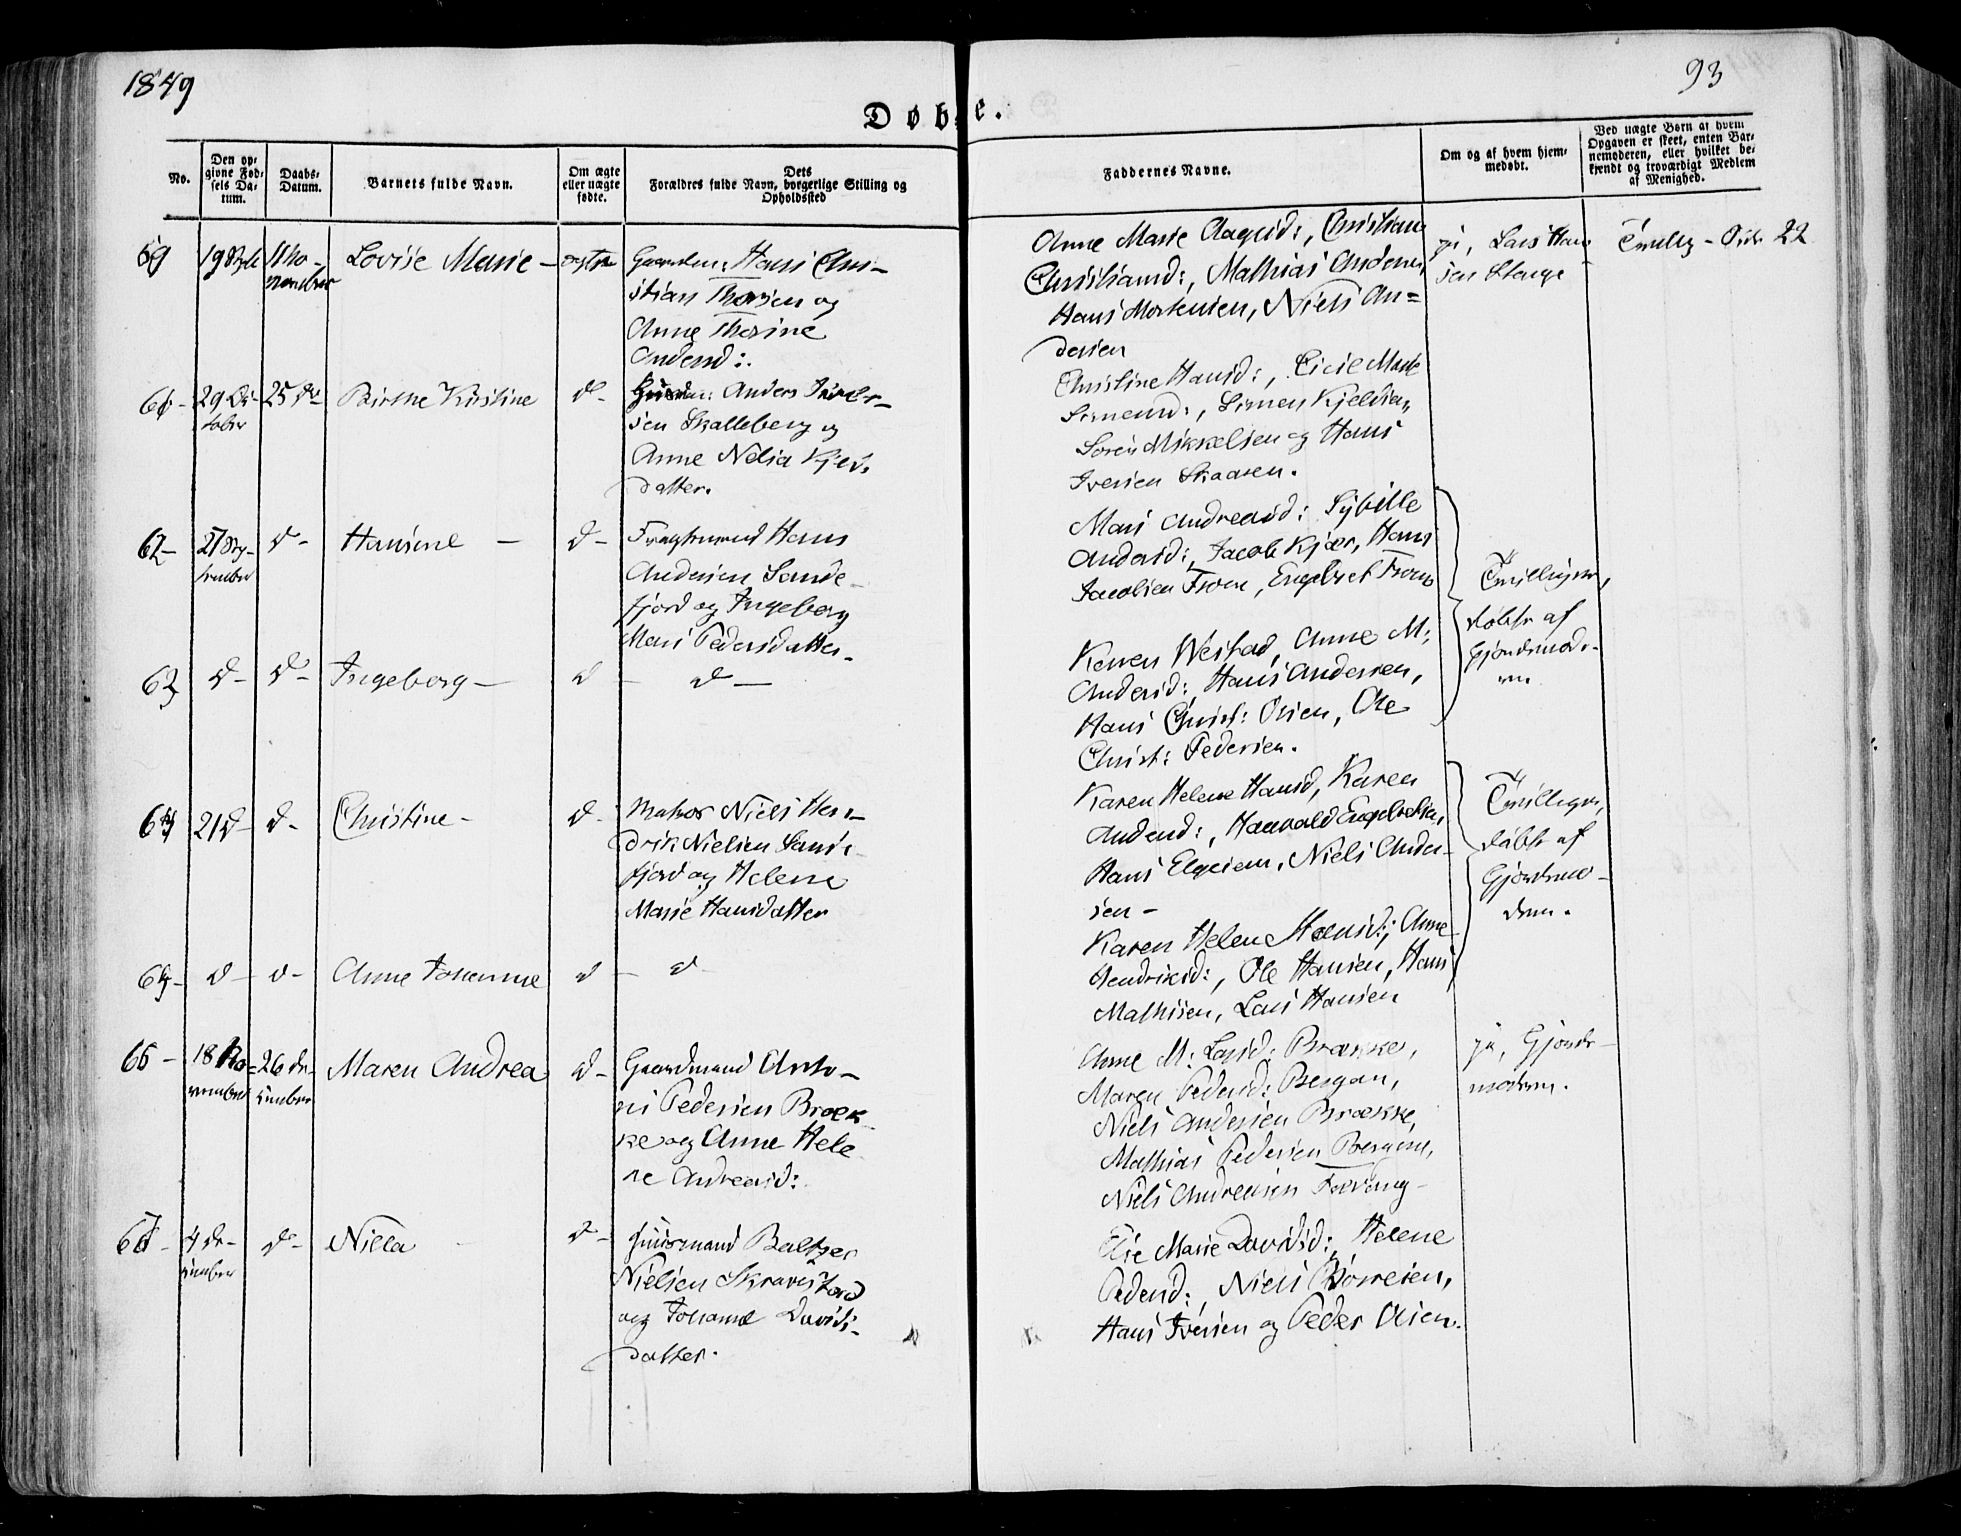 1849
93
Døbte.
No.
Den op-
givne Fød-
sels Da-
tum.
Daabs-
Datum.
Barnets fulde Navn.
Om ægte
eller uægte
fødte.
Dets
Forældres fulde Navn, borgerlige Stilling og
Opholdssted
Faddernes Navne.
Om og af hvem hjem-
medøbt.
Ved uægte Børn af hvem
Opgaven er skeet, enten Bar-
nemoderen, eller hvilket be-
kjendt og troværdigt Medlem
af Menighed.
19 Sept 11 No- Lovise Marie - ægte
vember
Hans Chri-
stian Thorsen og
Anne Thorine
Andersd:.
Anne Marie Aagesd:, Christiane
Christiansd:, Mathias Andersen,
Hans Mortensen, Niels An=
dersen
ja, Lars Han
sen Stange
22
29 Oc- 25 do Birthe Kirstine do-
tober
Anders Iver-
sen Skalleberg og
Anne Nelia Kjels
datter.
Christine Hansd:, Cicil Marie
Simensd:, Simen Kjeldsen,
Soren Mikkelsen og Hans
Iversen Skaaren.
62- 27 Sep- d- Hansine - d-
tember
Fragtmand Hans
Andersen Sande-
fjord og Ingeborg
Mari Pedersdatter-
Mari Andreasd: Sybille
Andersd:, Jacob Kjær, Hans
Jacobsen Troen, Engebret Troen
Tvillinger,
døbte af
Gjordemode-
ren
63 d- d- Ingeborg- d - d-
Karen Westad, Anne M:
Andersd:, Hans Andersen,
Hans Christ: Olsen, Ole
Christ: Pedersen.
64 21 d- d- Christine- d-
Matros Niels Hen-
drik Nielsen Sande
fjord og Helene
Marie Hansdatter
Karen Helene Hansd, Karen
Andersd:, Haavald Engebretsen,
Hans Elgesem, Niels Ander-
sen-
Tvillinger,
døbte af
Gjordemo-
dren.
65- d- d- Anne Johanne d - d-
Karen Helene Hansd:, Anne
Hendriksd:, Ole Hansen, Hans
Mathisen, Lars Hansen
66- 18 No- 26 de- Maren Andrea d-
vember cember
Gaardmand Anto-
ni Pedersen Bræk-
ke og Anne Hele
ne Andreasd:
Anne M: Larsd: Brække,
Maren Pedersd: Bergan,
Niels Andersen Brække,
Mathias Pedersen Bergan,
Niels Andreasen
ja, Gjorde-
moderen.
67- 4 de- d- Nilla - d-
cember
Huusmand Baltzer
Nielsen Skravestad
og Johanne Davids-
datter.
Else Marie Davidsd:, Helene
Pedersd:, Niels Børresen,
Hans Iversen og Peder Olsen.